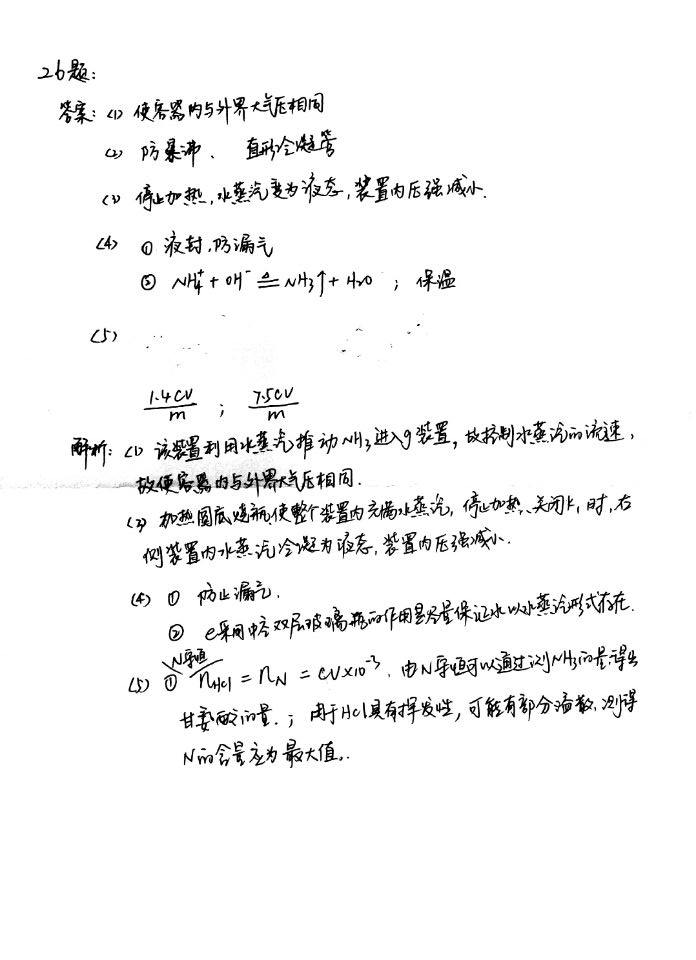 26题:
答案: (1) 使容器内与外界大气压相同
(2) 防暴沸、 直形冷凝管
(3) 停止加热,水蒸汽变为液态,装置内压强减小.
(4) ① 液封,防漏气
② NH₄⁺ + OH⁻ ≜ NH₃↑ + H₂O ; 保温
(5)
1.4CV/m ; 7.5CV/m
解析: (1) 该装置利用水蒸气推动NH₃进入g装置, 故控制水蒸汽的流速,
故使容器内与外界大气压相同.
(3) 加热圆底烧瓶使整个装置内充满水蒸汽, 停止加热、关闭k₁时,右
侧装置内水蒸汽冷凝为液态,装置内压强减小.
(4) ① 防止漏气.
② e采用中空双层玻璃瓶的作用是尽量保证水以水蒸汽形式存在.
N守恒
(5) ① nHCl = nN = CV×10⁻³. 由N守恒可以通过测NH₃的量得出
甘氨酸的量. ; 由于HCl具有挥发性, 可能有部分逸散, 测得
N的含量应为最大值.